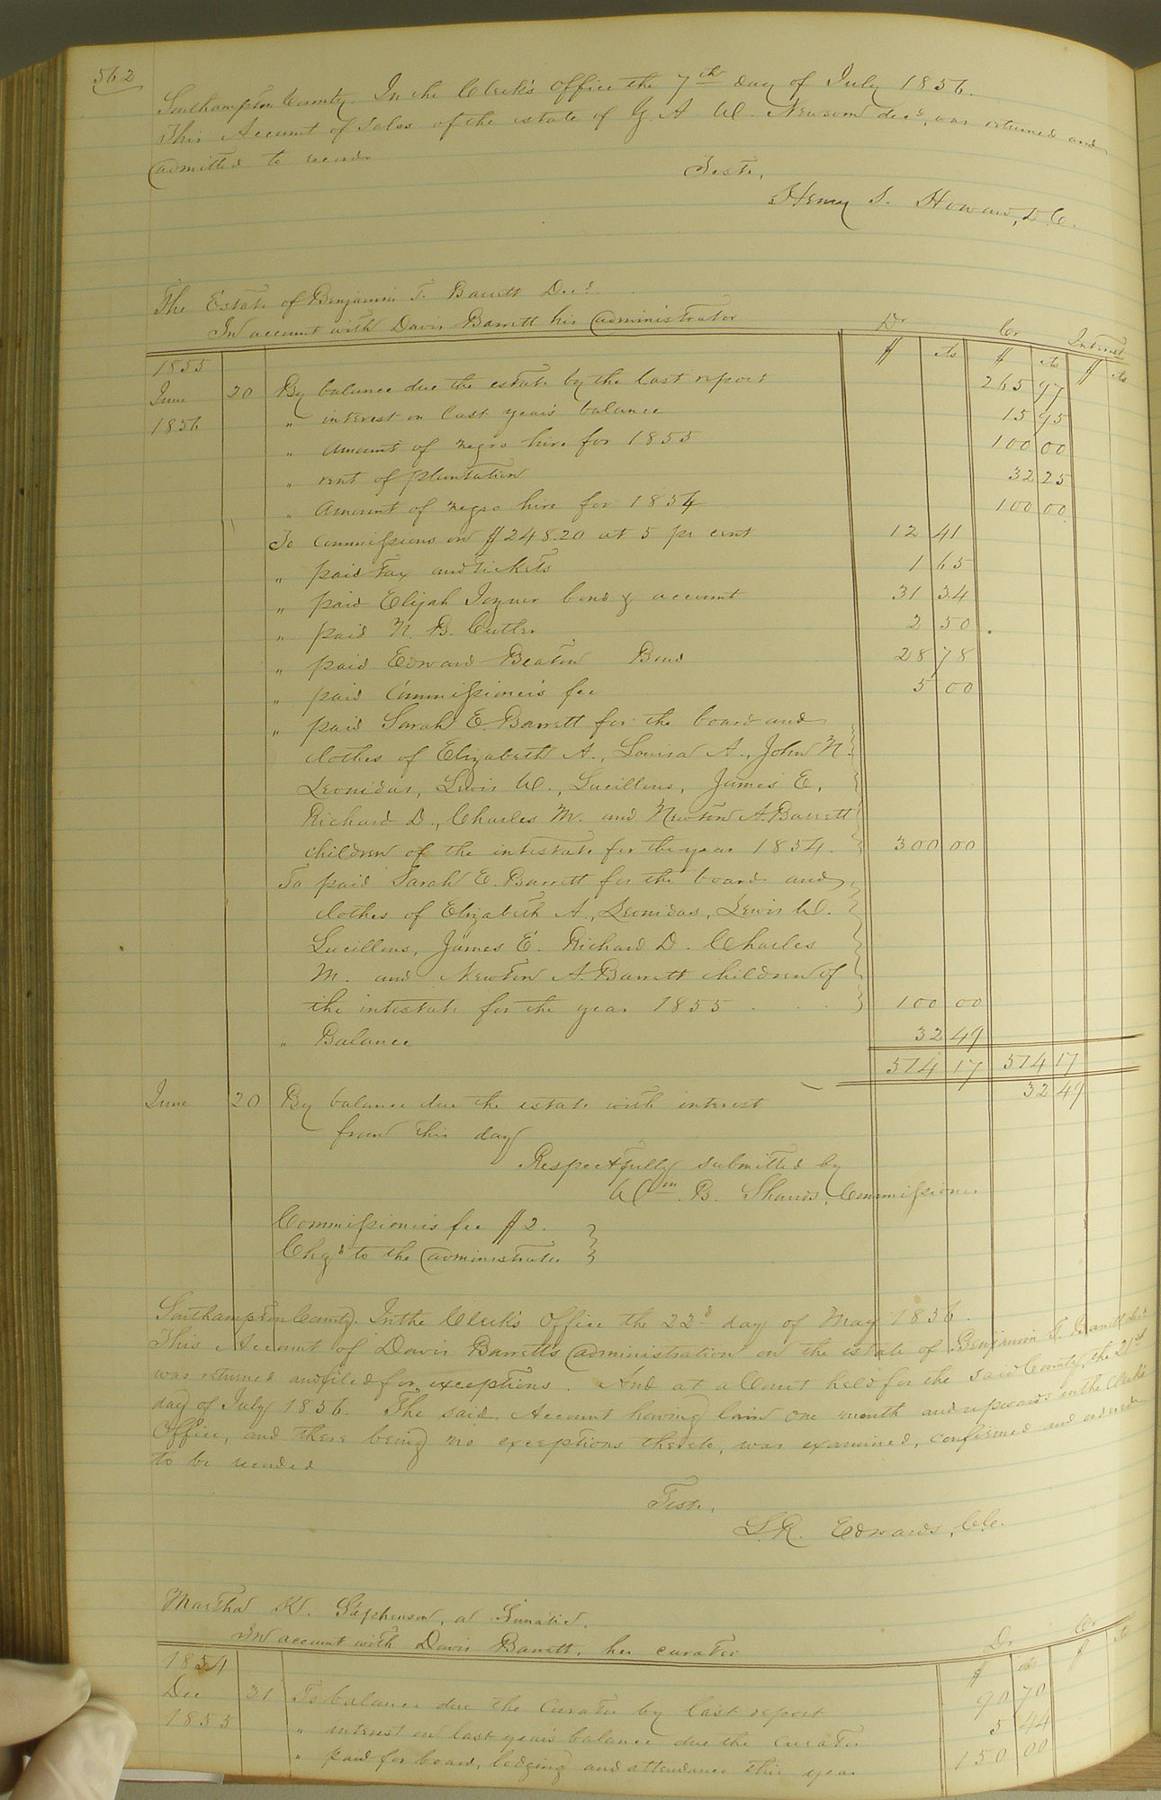 562
Southampton County. In the Clerk's Office the 7th day of July 1856.
This Account of Sales of the estate of G A W. Newsom decd, was returned and
admitted to record
Teste,
Henry S. Howard, D. C.
The Estate of Benjamin T. Barrett Decd
In account with Davis Barrett his administrator Dr Cr Interest
$ cts $ cts $ cts
1855
June 20 By balance due the estate by the last report 265 97
1856 " interest on last year's balance 15 95
" Amount of negro hire for 1855 100 00
" rent of plantation 32 25
" Amount of negro hire for 1854 100 00
To Commissions on $248.20 at 5 pr cent 12 41
" paid Tax and tickets 1 65
" paid Elijah Joyner bond & account 31 34
" paid N. B. Cutler 2 50
" paid Edward Beaton Bond 28 78
" paid Commissioner's fee 5 00
" paid Sarah E. Barrett for the board and
clothes of Elizabeth A., Louisa A., John N.
Leonidas, Lewis W., Lucillius, James E,
Richard D., Charles M. and Newton A. Barrett
children of the intestate for the year 1854. 300 00
To paid Sarah E. Barrett for the board and
clothes of Elizabeth A, Leonidas, Lewis W.
Lucillius, James E. Richard D. Charles
M. and Newton A. Barrett children of
the intestate for the year 1855 100 00
" Balance 32 49
514 17 514 17
June 20 By balance due the estate with interest 32 49
from this day
Respectfully submitted by
Wm. B. Shands, Commissioner
Commissioner's fee $2.
Chgd to the administrator
Southampton County. In the Clerk's Office the 22d day of May 1856.
This Account of Davis Barrett's administration on the estate of Benjamin T. Barrett decd
was returned and filed for exceptions. And at a Court held for the said County, the 21st
day of July 1856. The said Account having lain one month and upwards in the Clerk's
Office, and there being no exceptions thereto, was examined, confirmed and ordered
to be recorded
Teste,
L. R. Edwards, C.C.
Martha K. Stephenson, a Lunatic.
In account with Davis Barrett, her curator Dr Cr
$ cts $ cts
1854
Dec 31 To balance due the Curator by last report 90 70
1855 " interest on last year's balance due the Curator 5 44
" paid for board, lodging and attendance this year 150 00